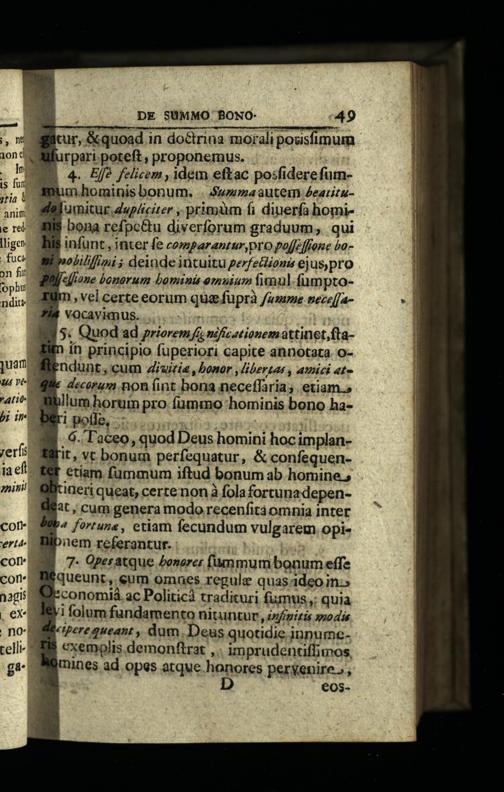 DE SUMMO BONO. 49
gatur, & quoad in doctrina morali potissimum
usurpari potest, proponemus.
4. Esse felicem, idem est ac possidere sum-
mum hominis bonum. Summa autem beatitu-
do sumitur dupliciter, primùm si diversa homi-
nis bona respectu diversorum graduum, qui
his insunt, inter se comparantur, pro possessione bo-
ni nobilissimi; deinde intuitu perfectionis ejus, pro
possessione bonorum hominis omnium simul sumpto-
rum, vel certe eorum quæ suprà summe necessa-
ria vocavimus.
5. Quod ad priorem significationem attinet, sta-
tim in principio superiori capite annotata o-
stendunt, cum divitiæ, honor, libertas, amici at-
que decorum non sint bona necessaria, etiam
nullum horum pro summo hominis bono ha-
beri posse.
6. Taceo, quod Deus homini hoc implan-
tarit, vt bonum persequatur, & consequen-
ter etiam summum istud bonum ab homine
obtineri queat, certe non à sola fortuna depen-
deat, cum genera modo recensita omnia inter
bona fortunæ, etiam secundum vulgarem opi-
nionem referantur.
7. Opes atque honores summum bonum esse
nequeunt, cum omnes regulæ quas ideo in
Oeconomiâ ac Politicâ tradituri sumus, quia
levi solum fundamento nituntur, infinitis modis
decipere queant, dum Deus quotidie innume-
ris exemplis demonstrat, imprudentissimos
homines ad opes atque honores pervenire,
D eos-